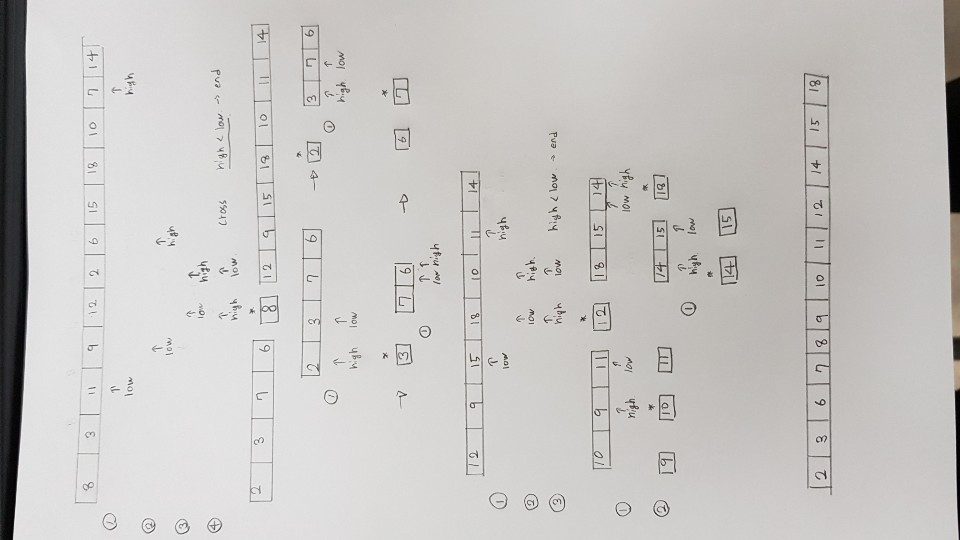 8 3 11 9 12 2 6 15 18 10 7 14
① ↑ low ↑ high
② ↑ low ↑ high
③ ↑ low ↑ high
④ ↑ high ↑ low cross high < low → end
2 3 7 6 * 8 12 9 15 18 10 11 14
2 3 7 6 → * 2 3 7 6
① ↑ high ↑ low ① ↑ high ↑ low
→ * 3 7 6 → 6 * 7
① ↑ low ↑ high
12 9 15 18 10 11 14
① ↑ low ↑ high
② ↑ low ↑ high
③ ↑ high ↑ low high < low → end
10 9 11 * 12 18 15 14
① ↑ high ↑ low ↑ low ↑ high
② 9 * 10 11 14 15 * 18
① ↑ high ↑ low
* 14 15
2 3 6 7 8 9 10 11 12 14 15 18